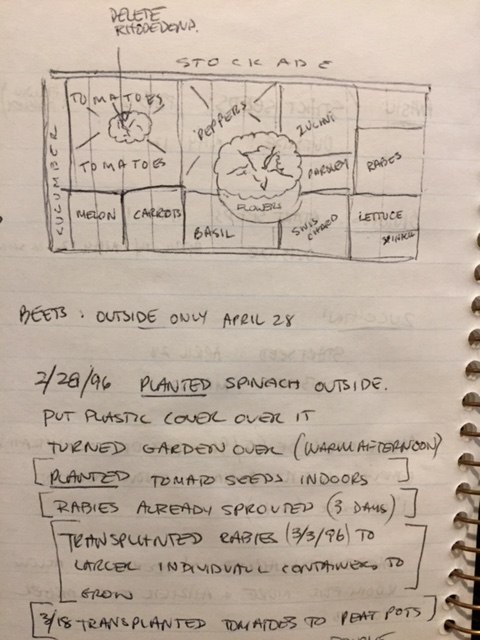 DELETE
RHODEDEND.
STOCKADE
CUCUMBER
TOMATOES
TOMATOES
PEPPERS
ZUCINI
PARSLEY
RABES
MELON
CARROTS
BASIL
FLOWERS
SWISS
CHARD
LETTUCE
SPINACH
BEETS : OUTSIDE ONLY APRIL 28
2/28/96 PLANTED SPINACH OUTSIDE.
PUT PLASTIC COVER OVER IT
TURNED GARDEN OVER (WARM AFTERNOON)
[PLANTED TOMATO SEEDS INDOORS]
[RABIES ALREADY SPROUTED (3 DAYS)]
[TRANSPLANTED RABIES (3/3/96) TO
LARGER INDIVIDUAL CONTAINERS TO
GROW]
[3/18 TRANSPLANTED TOMATOES TO PEAT POTS)